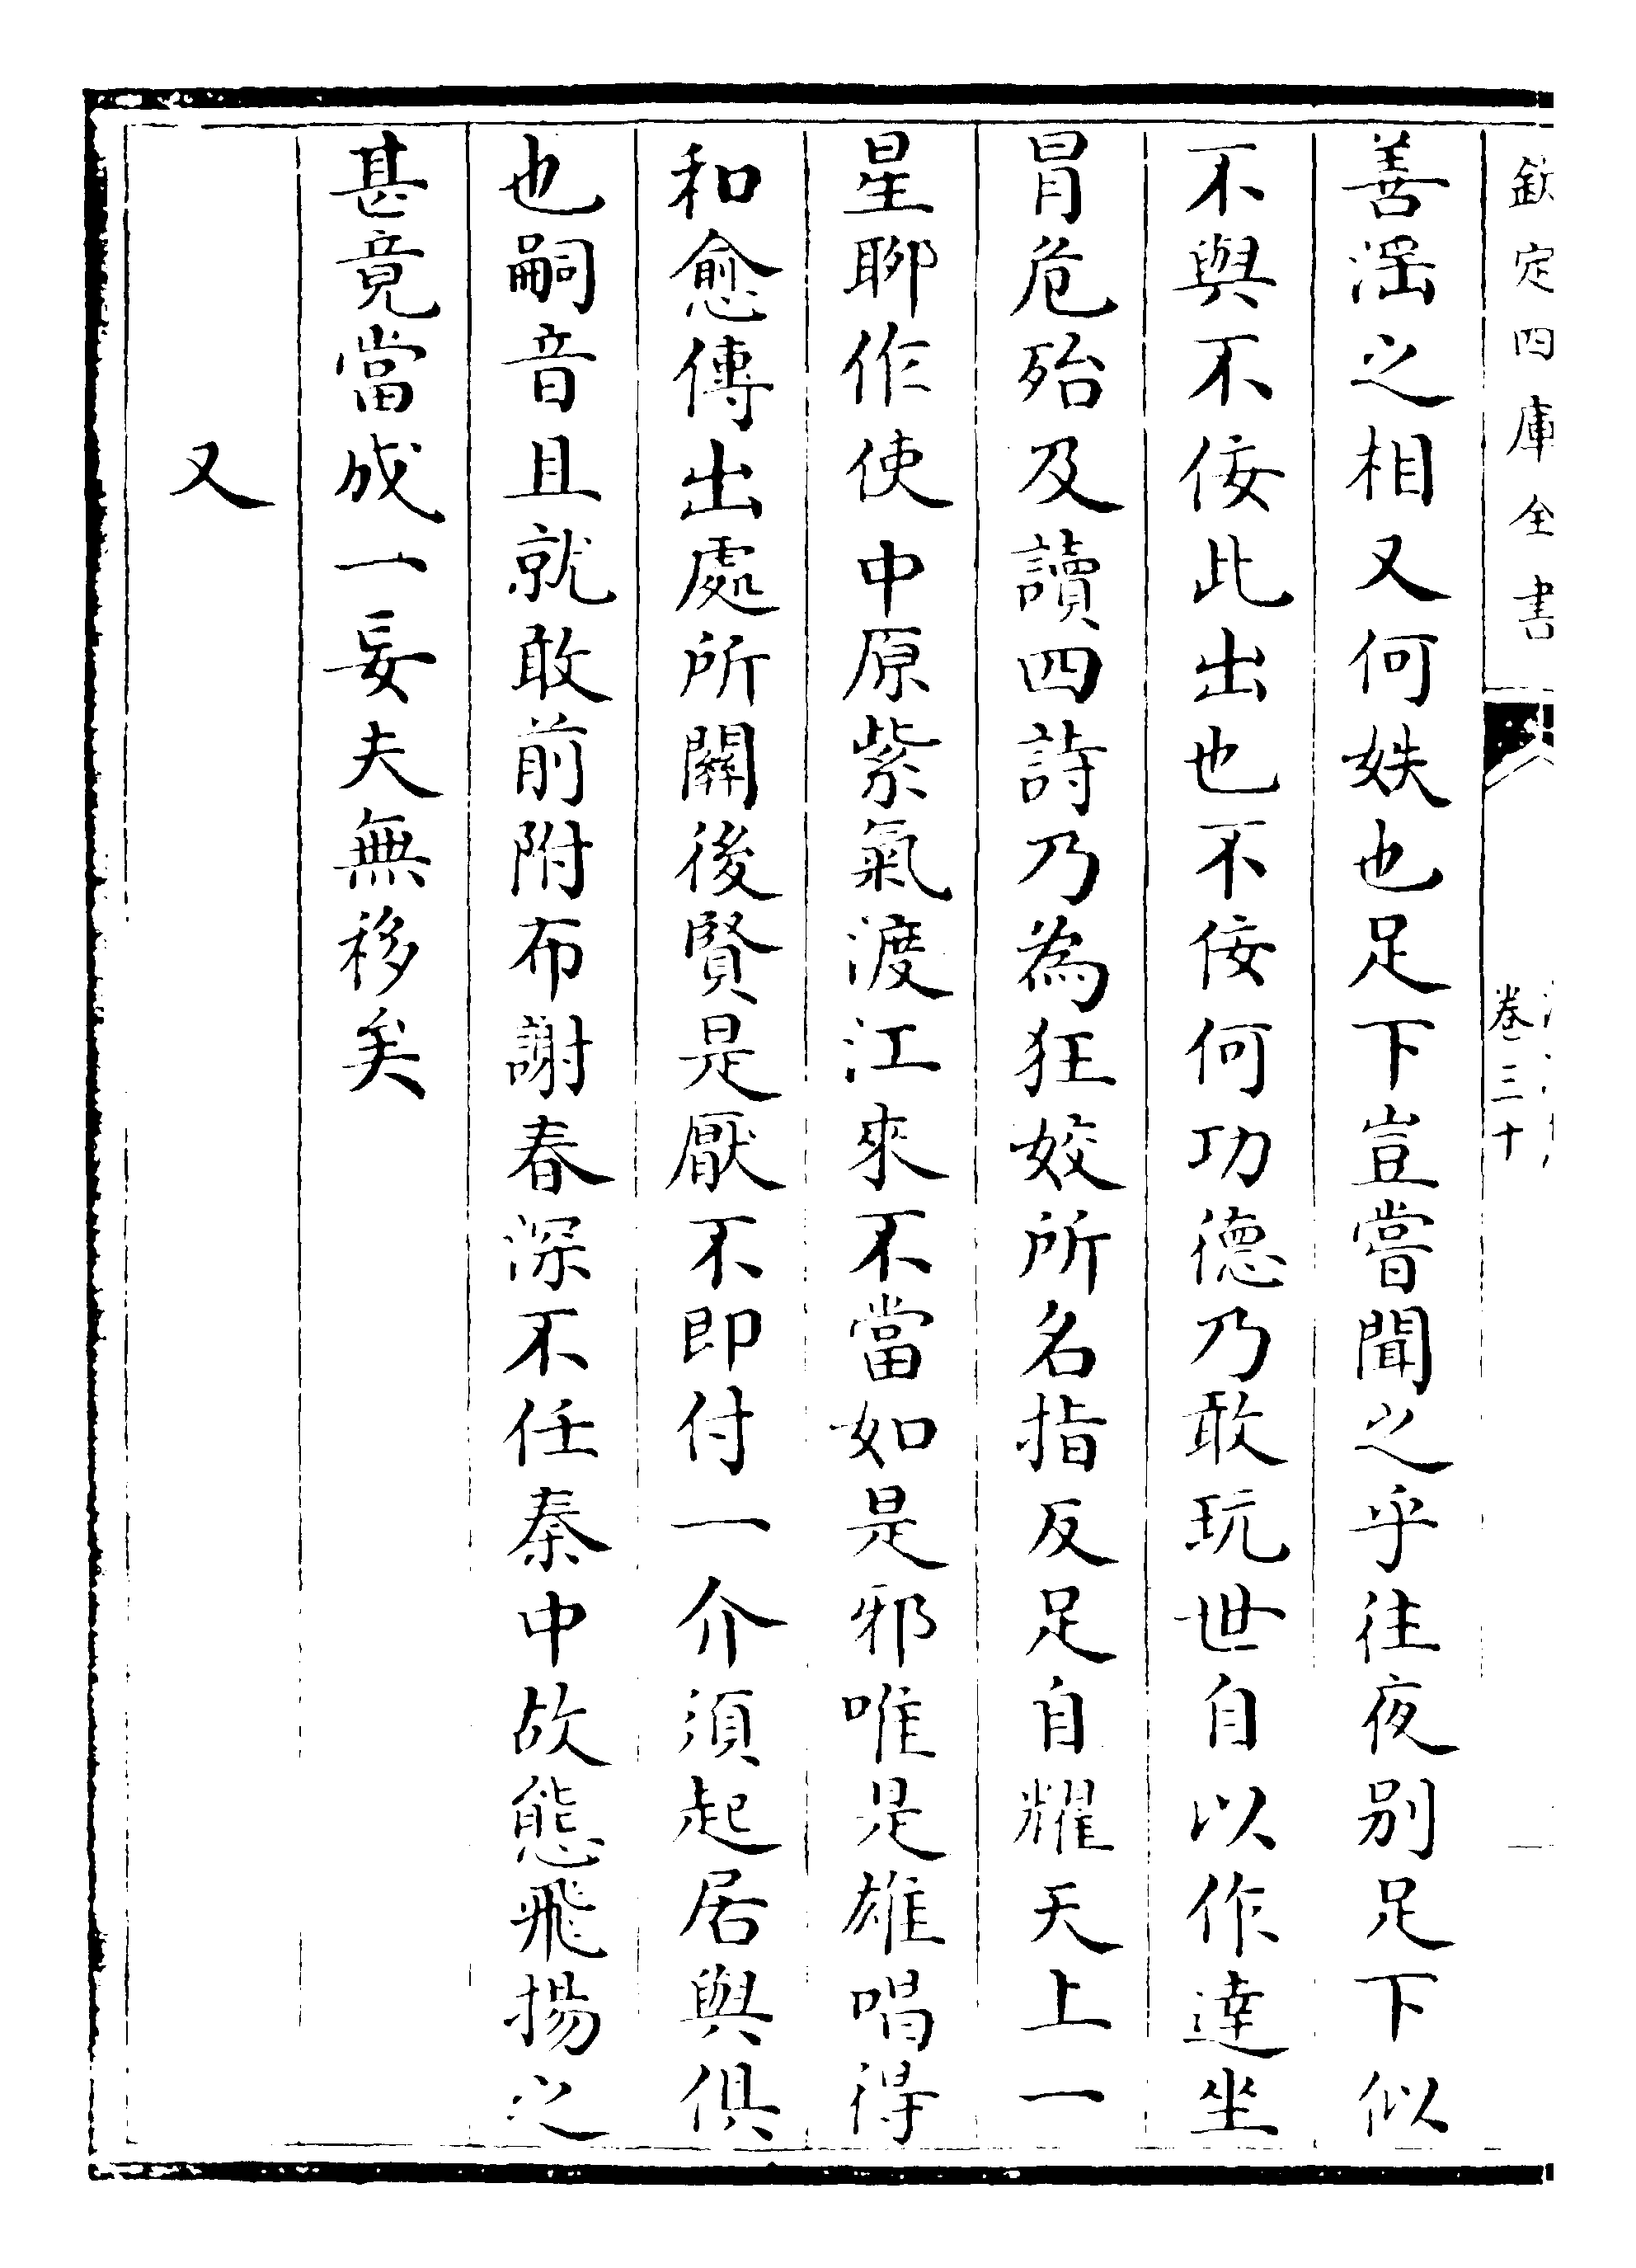 欽定四庫全書
卷三十
善淫之相又何姝也足下豈嘗聞之乎往夜别足下似
不與不佞此出也不佞何功德乃敢玩世自以作達坐
冒危殆及讀四詩乃為狂姣所名指反足自耀天上一
星聊作使中原紫氣渡江來不當如是邪唯是雄唱得
和愈傳出處所關後賢是厭不即付一介須起居與俱
也嗣音且就敢前附布謝春深不任秦中故態飛揚之
甚竟當成一妄夫無移矣
又